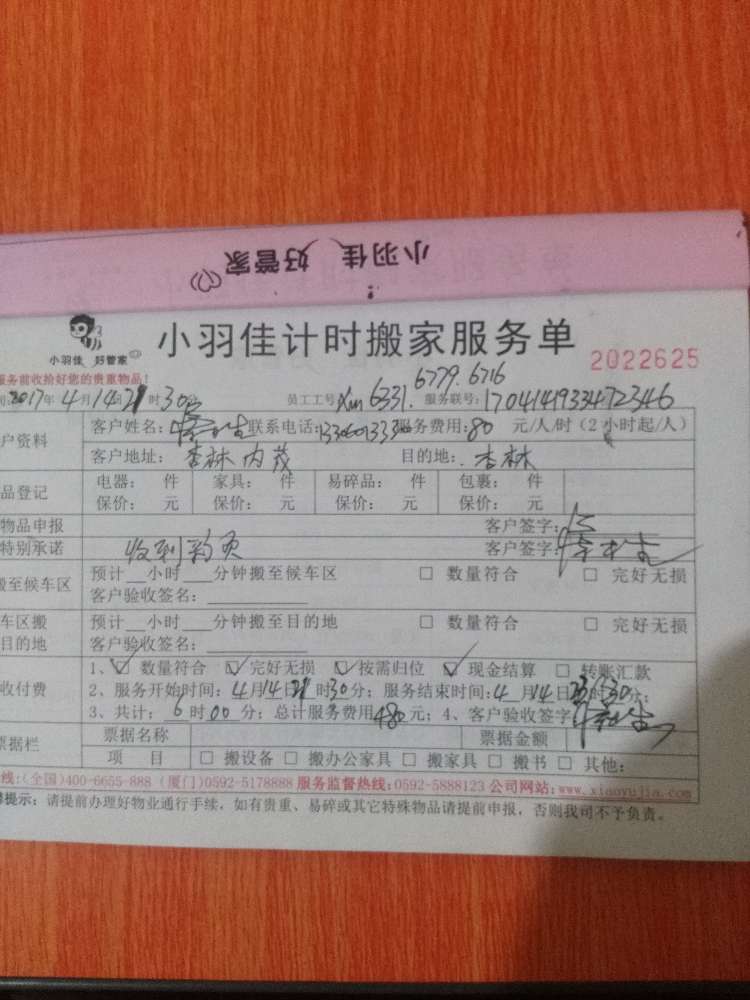 小羽佳 好管家
小羽佳 好管家
小羽佳计时搬家服务单
2022625
服务前收拾好您的贵重物品!
2017年4月14日21时30分 员工工号 6331.6779.6716 服务联号:170414933472346
户资料 客户姓名: 联系电话: 服务费用:80 元/人/时(2小时起/人)
客户地址: 杏林内茂 目的地: 杏林
品登记 电器: 件 家具: 件 易碎品: 件 包裹: 件
保价: 元 保价: 元 保价: 元 保价: 元
物品申报 客户签字:
特别承诺 收到 客户签字:
搬至候车区 预计__小时___分钟搬至候车区 □ 数量符合 □ 完好无损
客户验收签名:
车区搬目的地 预计__小时___分钟搬至目的地 □ 数量符合 □ 完好无损
客户验收签名:
收付费 1、☑ 数量符合 ☑ 完好无损 ☑ 按需归位 ☑ 现金结算 □ 转账汇款
2、服务开始时间:4月14日21时30分;服务结束时间:4月14日23时30分;
3、共计:6时00分;总计服务费用480元;4、客户验收签字
票据栏 票据名称 票据金额
项 目 □ 搬设备 □ 搬办公家具 □ 搬家具 □ 搬书 □ 其他:
线:(全国)400-6655-888 (厦门)0592-5178888 服务监督热线:0592-5888123 公司网站:www.xiaoyujia.com
提示:请提前办理好物业通行手续,如有贵重、易碎或其它特殊物品请提前申报,否则我司不予负责。